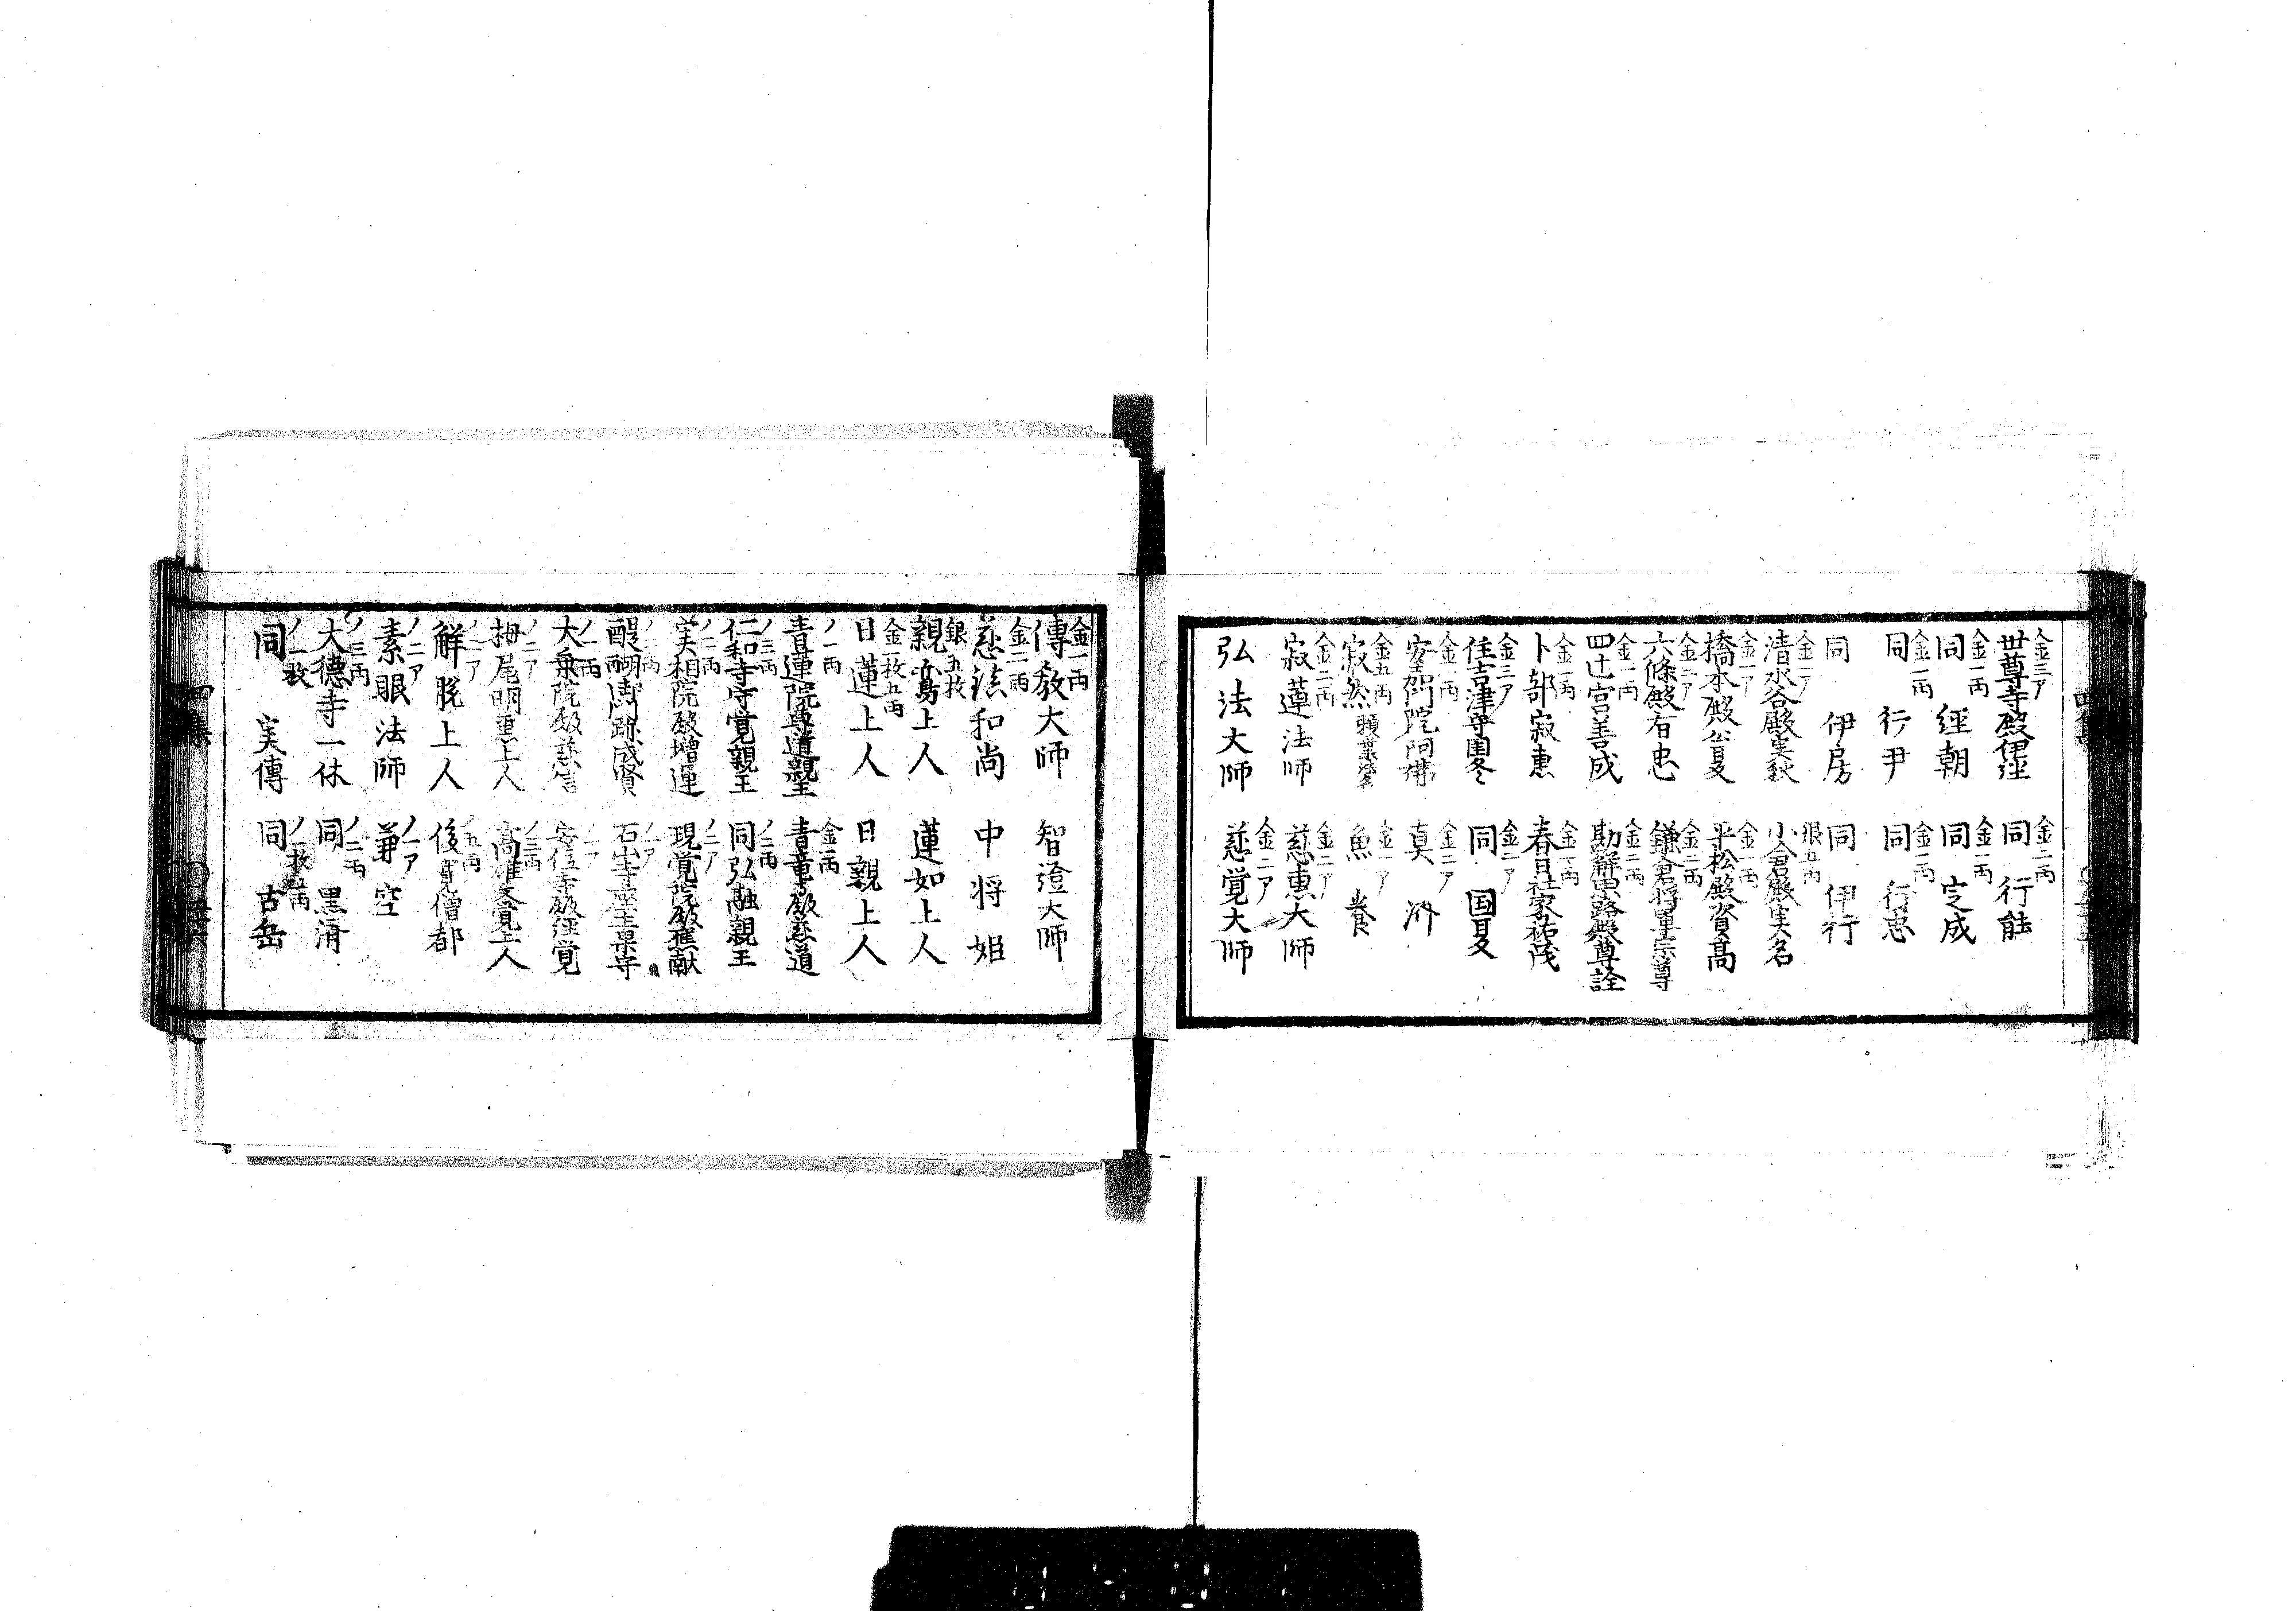 金三ア 世尊寺殿伊経 金二両 同 行能
金一両 同 経朝 金一両 同 定成
金一両 同 行尹 金一両 同 行忠
同 伊房 同 伊行
金一ア 清水谷殿実秋 銀五両 小倉殿実名
金一ア 橋本殿公夏 金一両 平松殿資高
金二ア 六條殿有忠 金二両 鎌倉将軍宗尊
金一両 四辻宮善成 金二両 勘解由小路殿尊詮
金一両 卜部寂恵 金一両 春日社家祐茂
金三ア 住吉津守国冬 金二ア 同 国夏
金一両 安嘉門院阿佛 金二ア 真 浄
金五両 寂然 頼業 金一ア 魚 養
金二両 寂蓮法師 金二ア 慈恵大師
弘法大師 金二ア 慈覚大師
金一両 傳教大師 智證大師
金二両 慈鎮和尚 中将姫
銀五枚 親鸞上人 蓮如上人
金一枚五両 日蓮上人 日親上人
ノ一両 青蓮院尊道親王 金一両 青蓮院殿慈道
ノ三両 仁和寺守覚親王 ノ二両 同弘融親王
ノ二両 実相院殿増運 ノ二ア 現覚院殿蕉献
醍醐御跡成賢 ノ一ア 石山寺座主果守
ノ一両 大乗院殿慈信 ノ一ア 安位寺殿経覚
ノ二ア 栂尾明恵上人 ノ三両 高雄文覚上人
ノ二ア 解脱上人 五両 俊寛僧都
ノ二ア 素眼法師 ノ一ア 兼空
ノ三両 大徳寺一休 ノ二両 同 黒済
ノ一枚 同 実傳 ノ一枚五両 同 古岳